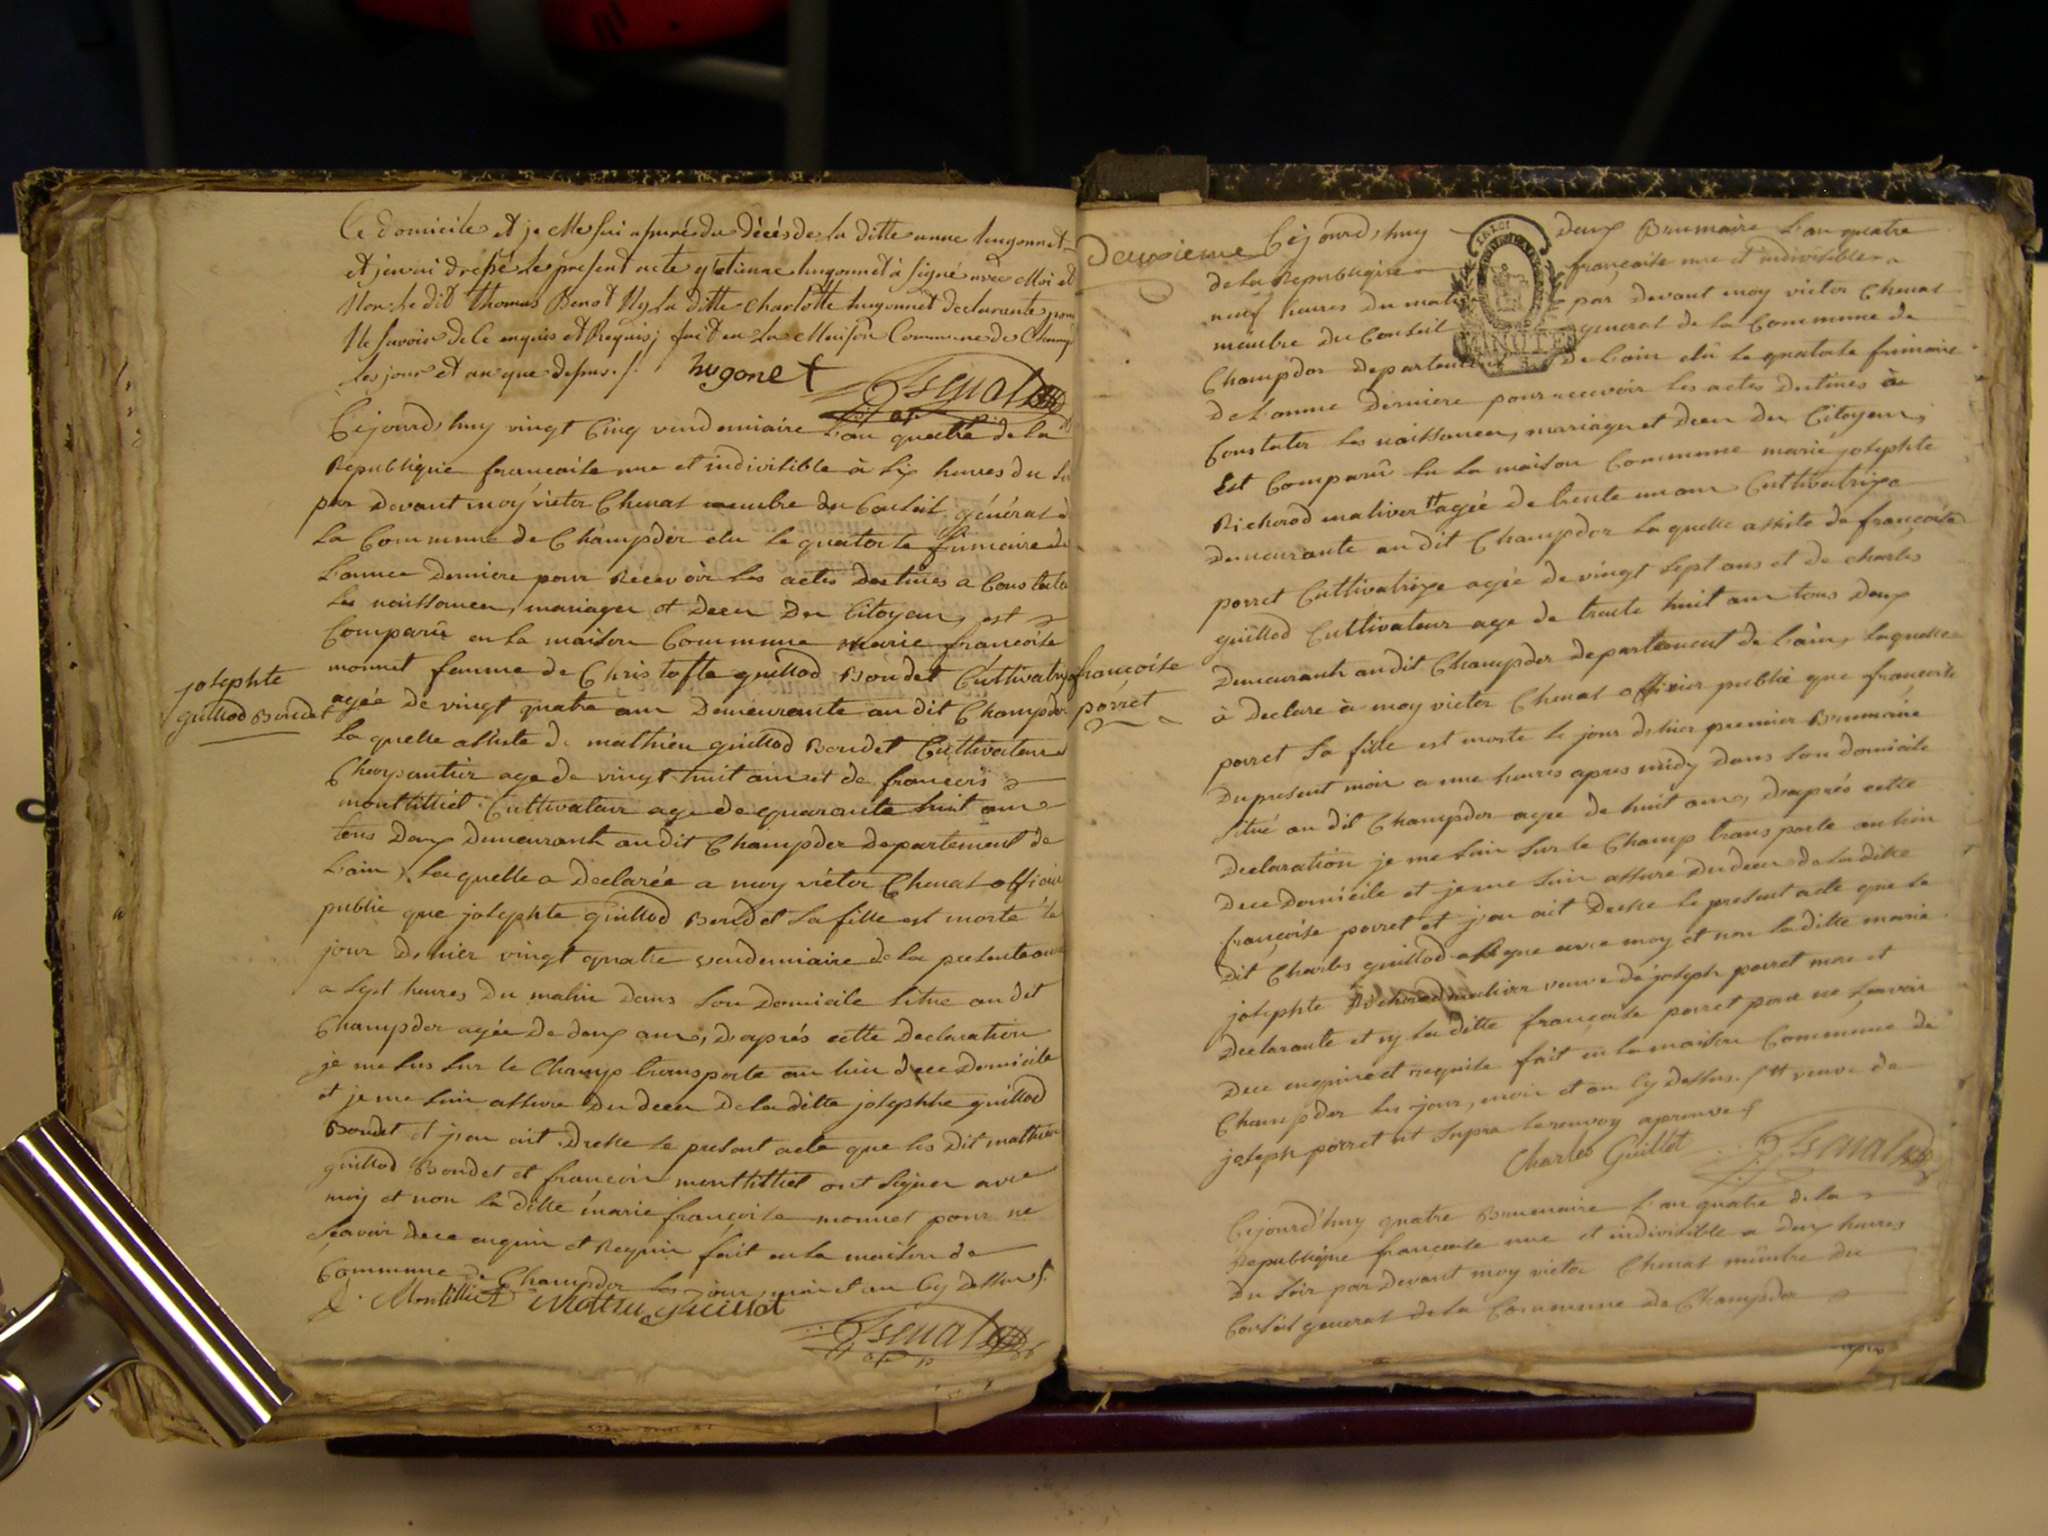 Ce domicile et je me sui assuré du décés de la ditte anne hugonnet
et j'en ai dressé le present acte q'etienne hugonnet à signé avec Moi et
Non le dit Thomas Benot Ny la ditte Charlotte hugonnet declarante pour
Ne savoir de Ce enquis et Requis; fait en La Maison Commune de Champ
les jour et an que desus /.
hugonet
Cejourd,huy vingt Cinq vendemiaire L'an quatre de la
Republique francoise une et indivisible à six heures du soir
par devant moy victor Chenal membre du Conseil général de
La Commune de Champdor elu le quatorse frimaire de
L'annee derniere pour Recevoir les actes destines a Constater
les naissances, mariages et deces des Citoyens, est
Comparûe en la maison Commune Marie francoise
monnet femme de Christofle guillod Bondet Cultivatrice
josephte
guillod Bondet
agée de vingt quatre ans demeurante au dit Champdor
La quelle assiste de mathieu guillod Bondet Cultivateur
Charpentier age de vingt huit ans et de francois
montillied Cultivateur age de quarante huit ans
tous deux demeurants au dit Champdor departement de
L'ain, Laquelle a declarée a moy victor Chenal officier
public que josephte guillod Bondet sa fille est morte le
jour d'hier vingt quatre vendemiaire de la presente annee
a sept heures du matin dans son domicile situe au dit
Champdor agée de deux ans, d'aprés cette declaration
je me suis sur le Champ transporte au lieu de ce domicile
et je me suis assure du deces de la ditte josephte guillod
Bondet et j'en ait dresse le present acte que les dit mathieu
guillod Bondet et francois montillied ont signer avec
moy et non la ditte marie francoise monnet pour ne
sçavoir de ce enquis et Requis fait en la maison de
Commune de Champdor les jour, mois et an Cy dessus /.
Montilliet Mathieu guillot
Deuxieme
Cejourd,huy deux Brumaire L'an quatre
de la Republique françoise une et indivisible a
neuf heures du matin par devant moy victor Chenal
membre du Conseil general de la Commune de
MINUTE
Champdor departement de L'ain elû le quatorse frimaire
de L'annee derniere pour recevoir les actes destines à
Constater les naissances, mariages et deces des Citoyens,
Est Comparûe en la maison Commune marie josephte
Richerod maliver tt agée de trente un ans Cultivatrice
demeurante au dit Champdor la quelle assiste de françoise
porret Cultivatrice agée de vingt sept ans et de charles
guillod Cultivateur age de trente huit ans tous deux
françoise
porret
demeurants au dit Champdor departement de L'ain, laquelle
à declare à moy victor Chenal officier public que françoise
porret sa fille est morte le jour d'hier premier Brumaire
du present mois a une heures apres midy dans son domicile
situé au dit Champdor agee de huit ans, d'aprés cette
declaration je me suis sur le Champ transporte au lieu
de ce domicile et je me suis assure du deces de la ditte
françoise porret et j'en ait dresse le present acte que le
dit Charles guillod a signe avec moy et non la ditte marie
josephte Richerod maliver veuve de joseph porret mere et
declarante et ny la ditte françoise porret pour ne sçavoir
de ce enquise et requise fait en la maison Commune de
Champdor les jour, mois et an Cy dessus. / tt veuve de
joseph porret ut supra le renvoy aprouvé /.
Charles Guillot
Cejourd'huy quatre Brumaire L'an quatre de la
Republique françoise une et indivisible a deux heures
du soir par devant moy victor Chenal membre du
Conseil general de la Commune de Champdor